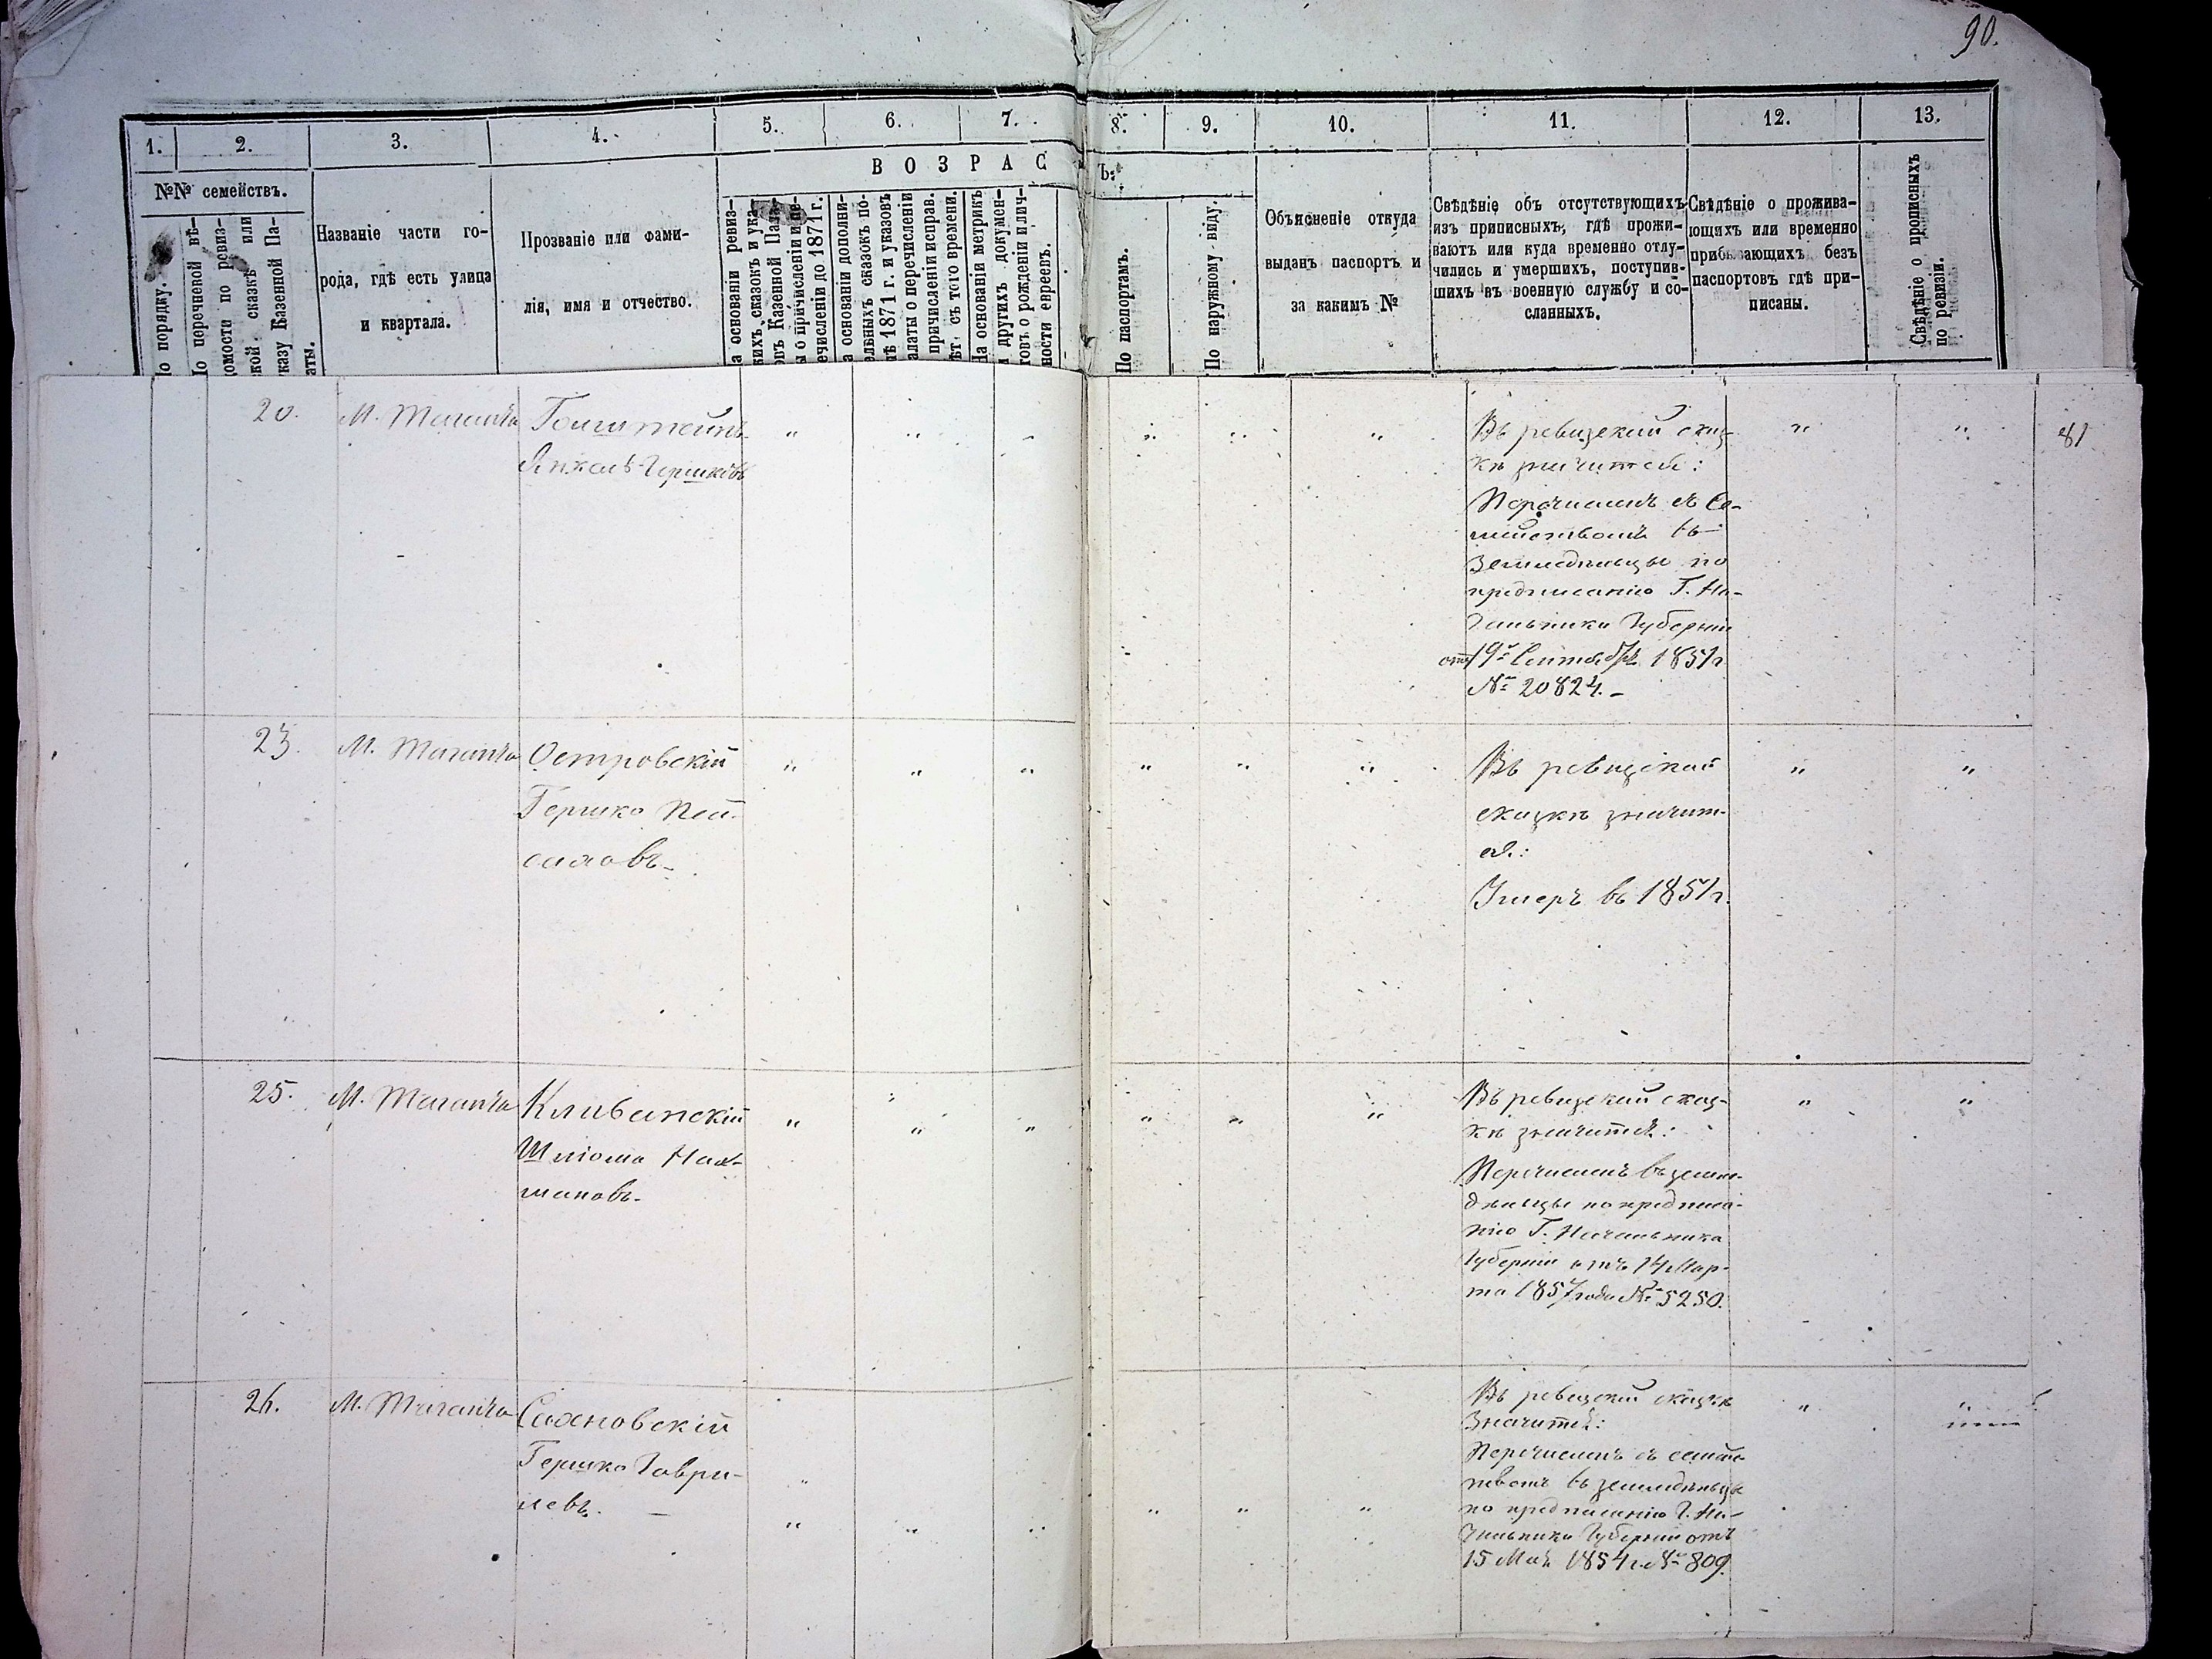 90.
1. 2. 3. 4. 5. 6. 7. 8. 9. 10. 11. 12. 13.
В О З Р А С Ъ.
№№ семействъ.
о порядку.
о перечневой вѣ-
омости по ревиз-
кой сказкѣ или
казу Казенной Па-
аты.
Названіе части го-
рода, гдѣ есть улица
и квартала.
Прозваніе или фами-
лія, имя и отчество.
а основаніи ревиз-
кихъ сказокъ и ука
овъ Казенной Пала-
ы о причисленіи и пе-
ечисленіи до 1871 г.
а основаніи дополни-
ельныхъ сказокъ по-
лѣ 1871 г. и указовъ
алаты о перечисленіи
причисленіи исправ.
ѣт. съ того времени.
На основаніи метрикъ
и другихъ докумен-
товъ о рожденіи и лич-
ности евреевъ.
По паспортамъ.
По наружному виду.
Объясненіе откуда
выданъ паспортъ и
за какимъ №
Свѣдѣніе объ отсутствующихъ
изъ приписныхъ, гдѣ прожи-
ваютъ или куда временно отлу-
чились и умершихъ, поступив-
шихъ въ военную службу и со-
сланныхъ.
Свѣдѣніе о прожива-
ющихъ или временно
прибывающихъ безъ
паспортовъ гдѣ при-
писаны.
Свѣдѣніе о прописныхъ
по ревизіи.
20. М. Таганча
Янкель Гершковъ
Въ ревизской сказ-
кѣ значится:
Перечисленъ съ Се-
мействомъ въ
Земледѣльцы по
предписанію Г. На-
чальника Губерніи
отъ 19го Сентября 1851 г.
№ 20824.-
81
23. М. Таганча
Островскій
Гершко Пей-
саховъ-
Въ ревизской
сказкѣ значит-
ся:
Умеръ въ 1851 г.
25. М. Таганча
Кливанскій
Шлиома Нах-
мановъ-
Въ ревизской сказ-
кѣ значится:
Перечисленъ въ земле-
дѣльцы по предписа-
нію Г. Начальника
Губерніи отъ 14 Мар-
та 1857 года № 5250.
26. М. Таганча
Сахновскій
Гершко Гаври-
левъ. -
Въ ревизской сказкѣ
Значится:
Перечисленъ съ семей-
ствомъ въ земледѣльцы
по предписанію Г. На-
чальника Губерніи отъ
15 Мая 1854 г. № 809.